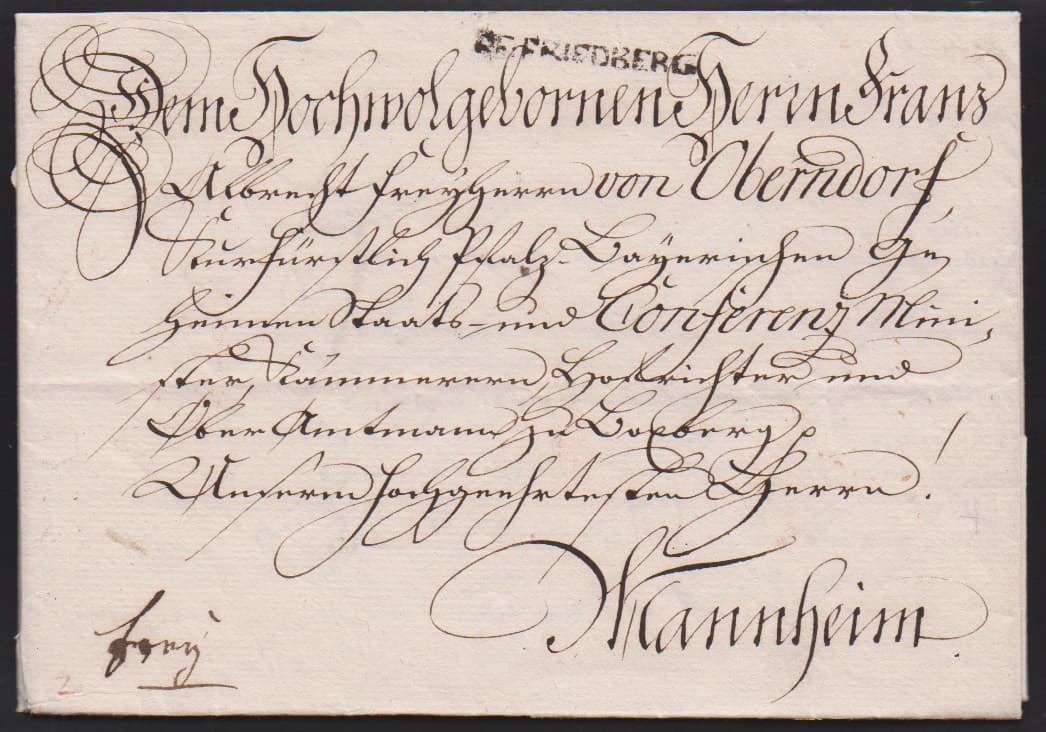 DE FRIEDBERG
Dem Hochwolgebornen Herrn Franz
Albrecht Freyherrn von Oberndorf,
Kurfürstlich Pfalz-Bayerischen Ge
heimen Staats- und Conferenz Mini-
ster, Kämmerern, Hofrichter und
Ober Amtmann zu Boxberg
Unserm hochgeehrtesten Herrn.
Mannheim.
frey